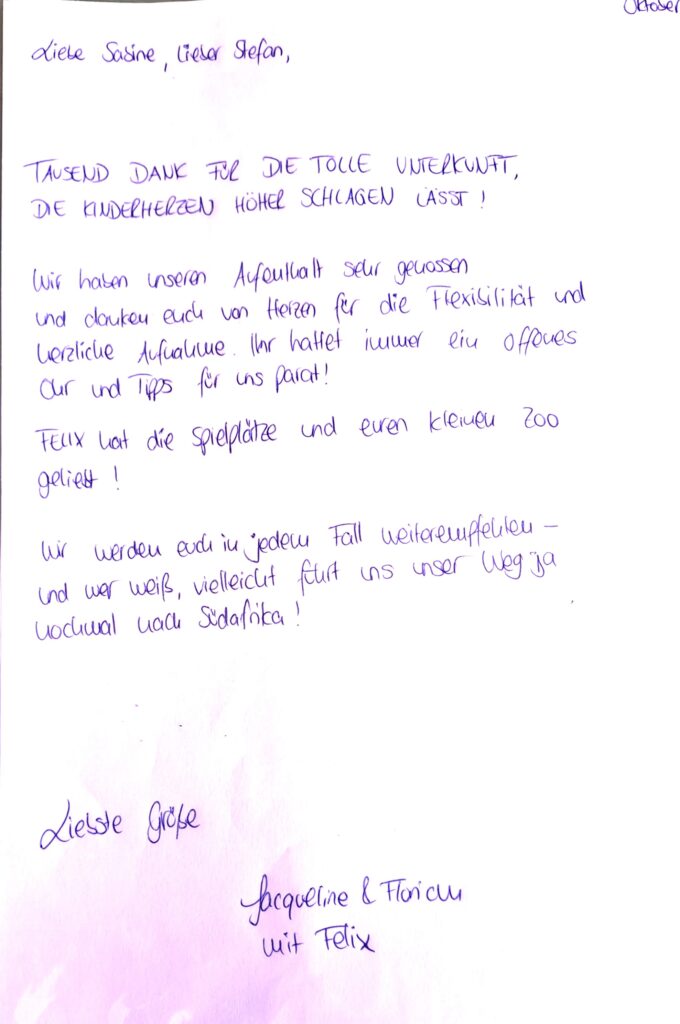 Oktober
Liebe Sabine, lieber Stefan,
TAUSEND DANK FÜR DIE TOLLE UNTERKUNFT,
DIE KINDERHERZEN HÖHER SCHLAGEN LÄSST!
Wir haben unseren Aufenthalt sehr genossen
und danken euch von Herzen für die Flexibilität und
herzliche Aufnahme. Ihr hattet immer ein offenes
Ohr und Tipps für uns parat!
FELIX hat die Spielplätze und euren kleinen Zoo
geliebt!
Wir werden euch in jedem Fall weiterempfehlen –
und wer weiß, vielleicht führt uns unser Weg ja
nochmal nach Südafrika!
Liebste Grüße
Jacqueline & Florian
mit Felix